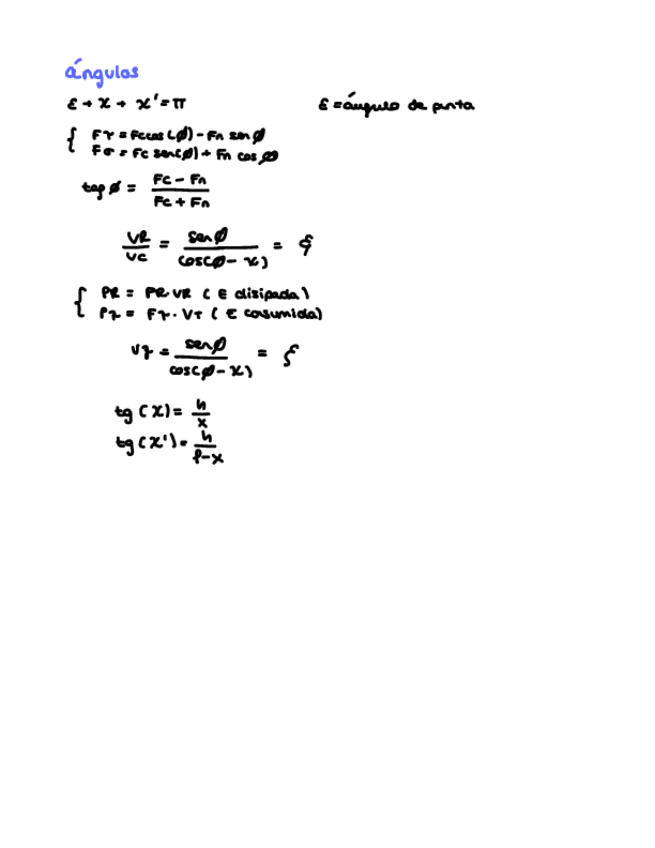 ángulos
ε + x + x' = π
ε = ángulo de punta
Fτ = Fc cos(ø) - Fn sen ø
Fσ = Fc sen(ø) + Fn cos ø
tag ø = Fc - Fn / Fc + Fn
VR / Vc = sen ø / cos(ø - x) =
PR = PR VR ( E disipada )
Pz = Fz · Vτ ( E cosumida )
Vz = sen ø / cos(ø - x) =
tg (x) = h / x
tg (x') = h / f - x